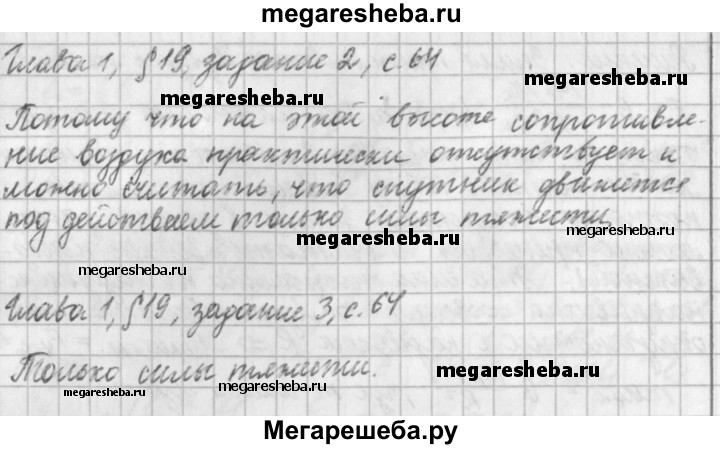 megaresheba.ru
Глава 1, §19, задание 2, с. 64
megaresheba.ru
megaresheba.ru
Потому что на этой высоте сопротивле-
ние воздуха практически отсутствует и
можно считать, что спутник движется
megaresheba.ru
под действием только силы тяжести
megaresheba.ru
megaresheba.ru
megaresheba.ru
Глава 1, §19, задание 3, с. 64
Только силы тяжести.
megaresheba.ru
megaresheba.ru
megaresheba.ru
Мегарешеба.ру